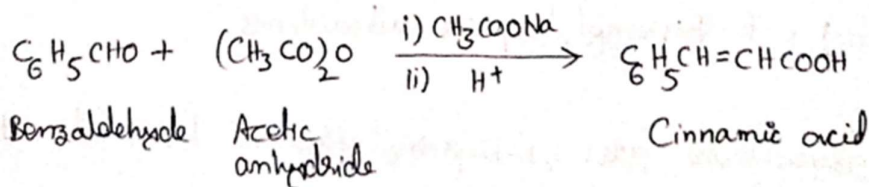 C₆H₅CHO + (CH₃CO)₂O i) CH₃COONa ii) H⁺ → C₆H₅CH=CHCOOH
Benzaldehyde Acetic anhydride Cinnamic acid